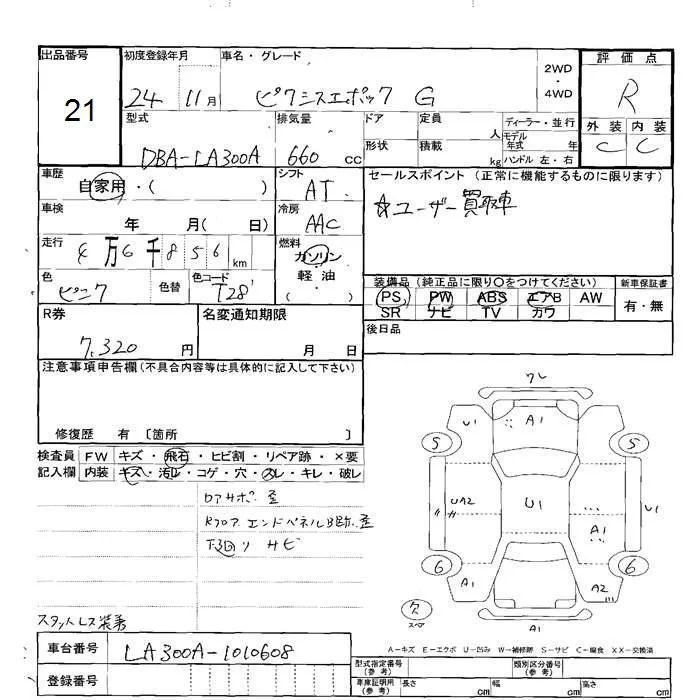 出品番号 初度登録年月 車名・グレード 2WD ・ 4WD 評価点
21 24 11月 ピクシスエポック G R
型式 排気量 ドア 定員 人 ディーラー・並行 外装 内装
DBA-LA300A 660 cc 形状 積載 kg モデル年式 年 C C
ハンドル 左・右
車歴 シフト セールスポイント (正常に機能するものに限ります)
自家用・( ) AT ☆ユーザー買取車
車検 年 月( 日) 冷房 AAC
走行 4万6千856km 燃料 ガソリン
軽油
( )
色 ピンク 色替 色コード T28
装備品 (純正品に限り○をつけてください) 新車保証書
PS PW ABS エアB AW 有・無
SR ナビ TV カワ
R券 7,320円 名変通知期限 月 日 後日品
注意事項申告欄(不具合内容等は具体的に記入して下さい)
修復歴 有 〔箇所 〕
検査員 FW キズ・飛石・ヒビ割・リペア跡・×要
記入欄 内装 キズ・汚レ・コゲ・穴・スレ・キレ・破レ
下回り サビ
スタットレス装着
ワレ
U1 A1
S S
UA2 U1 U1
A1
6 6
A1 A2
欠 スペア
A1
A-キズ E-エクボ U-凹み W-補修跡 S-サビ C-腐食 XX-交換済
車台番号 LA300A-1010608
登録番号
型式指定番号 (参考) 類別区分番号 (参考)
車庫証明用 (参考) 長さ cm 幅 cm 高さ cm